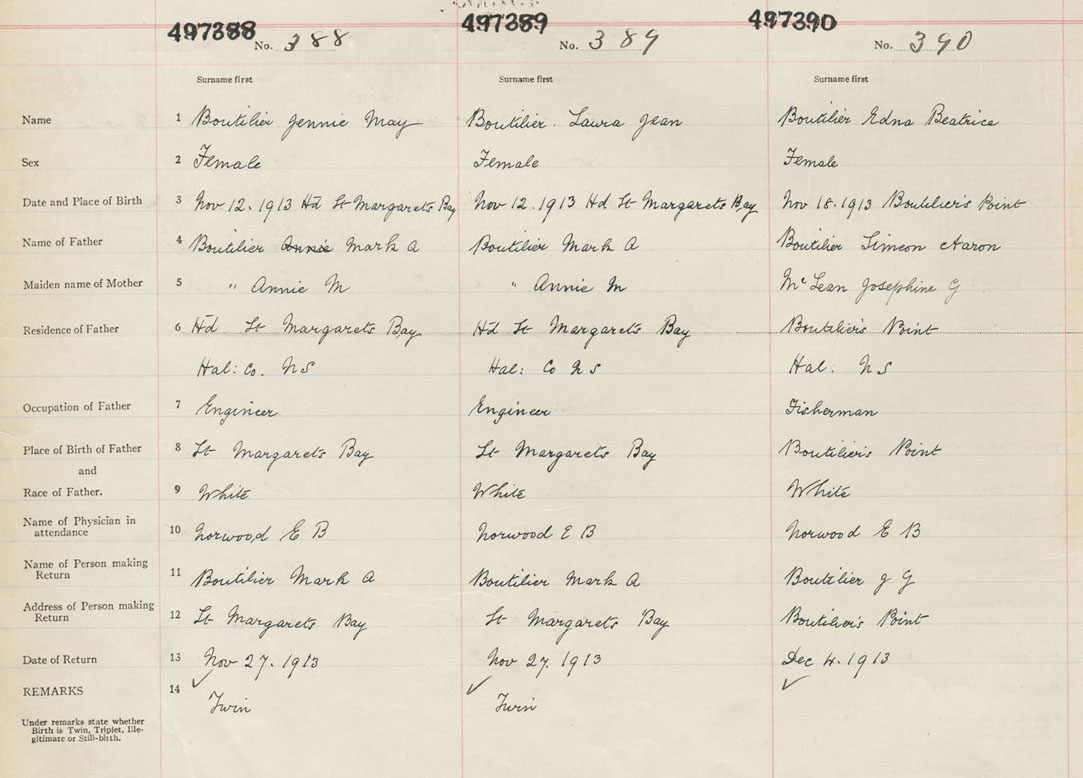 497388 497389 497390
No. 388 No. 389 No. 390
Surname first Surname first Surname first
Name 1 Boutilier Jennie May Boutilier. Laura Jean Boutilier Edna Beatrice
Sex 2 Female Female Female
Date and Place of Birth 3 Nov 12. 1913 Hd St Margarets Bay Nov 12. 1913 Hd St Margarets Bay Nov 18. 1913 Boutilier's Point
Name of Father 4 Boutilier Annie Mark A Boutilier Mark A Boutilier Simeon Aaron
Maiden name of Mother 5 " Annie M " Annie M McLean Josephine G
Residence of Father 6 Hd St Margarets Bay Hd St Margarets Bay Boutilier's Point
Hal: Co. N S Hal: Co N S Hal: N S
Occupation of Father 7 Engineer Engineer Fisherman
Place of Birth of Father 8 St Margarets Bay St Margarets Bay Boutilier's Point
and
Race of Father. 9 White White White
Name of Physician in
attendance 10 Norwood E B Norwood E B Norwood E B
Name of Person making
Return 11 Boutilier Mark A Boutilier Mark A Boutilier J G
Address of Person making
Return 12 St Margarets Bay St Margarets Bay Boutilier's Point
Date of Return 13 Nov 27. 1913 Nov 27. 1913 Dec 4. 1913
REMARKS 14 ✓ ✓ ✓
Twin Twin
Under remarks state whether
Birth is Twin, Triplet, Ille-
gitimate or Still-birth.